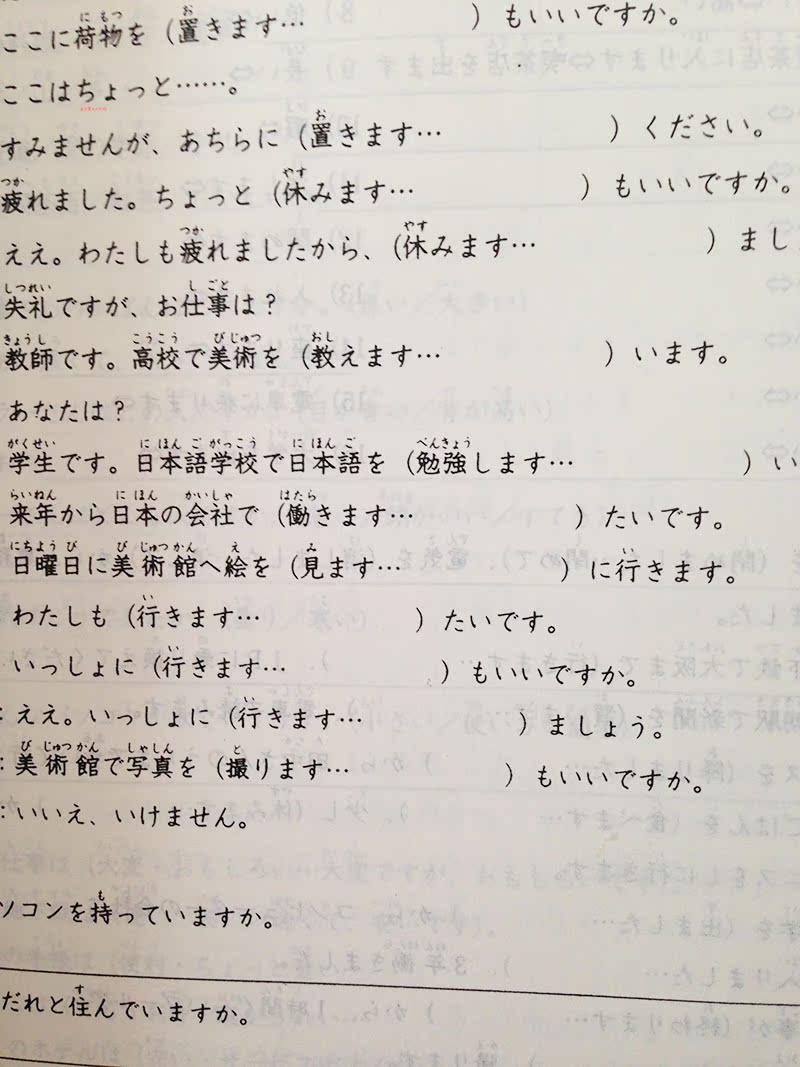 ここに荷物を（置きます… ）もいいですか。
ここはちょっと……。
すみませんが、あちらに（置きます… ）ください。
疲れました。ちょっと（休みます… ）もいいですか。
ええ。わたしも疲れましたから、（休みます… ）まし
失礼ですが、お仕事は？
教師です。高校で美術を（教えます… ）います。
あなたは？
学生です。日本語学校で日本語を（勉強します… ）い
来年から日本の会社で（働きます… ）たいです。
日曜日に美術館へ絵を（見ます… ）に行きます。
わたしも（行きます… ）たいです。
いっしょに（行きます… ）もいいですか。
：ええ。いっしょに（行きます… ）ましょう。
：美術館で写真を（撮ります… ）もいいですか。
：いいえ、いけません。
ソコンを持っていますか。
だれと住んでいますか。